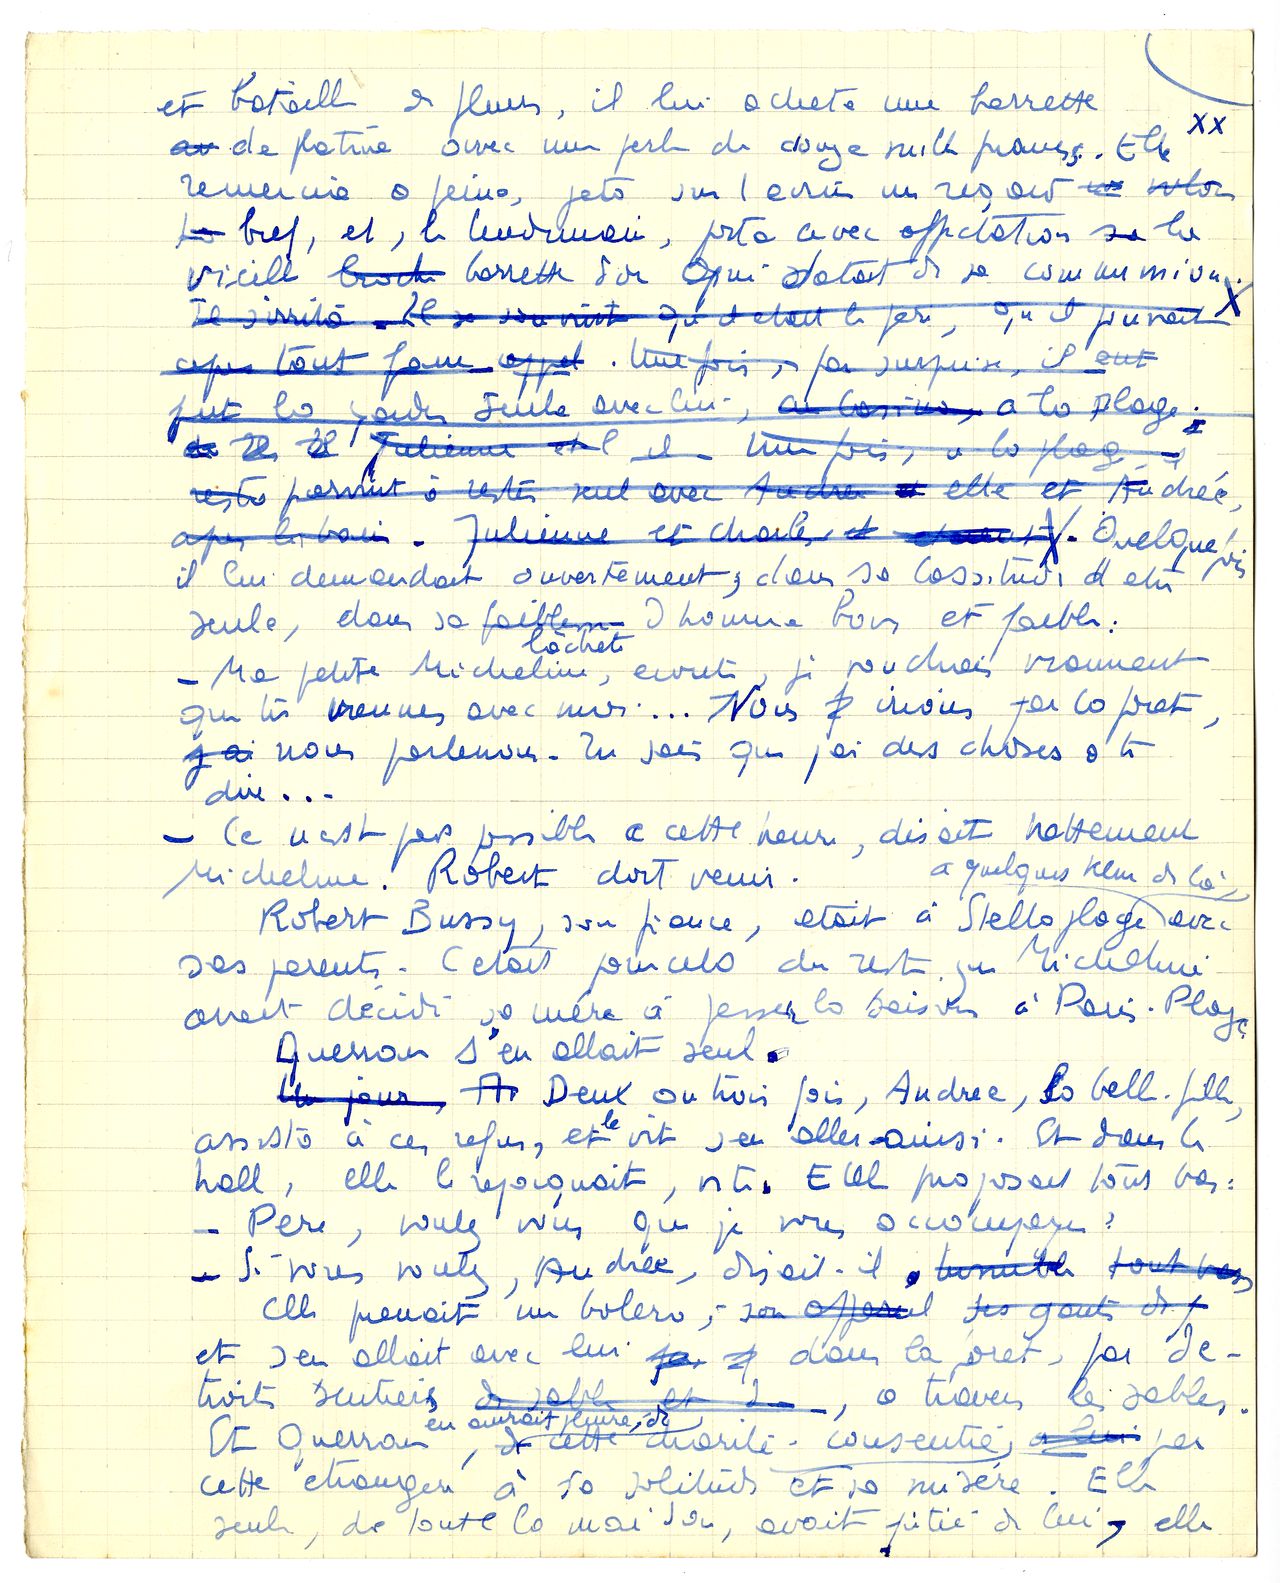 et bataille de fleurs, il lui acheta une barrette
xx
av de platine avec une perle de douze mille francs. Elle
remercia à peine, jeta sur l'écrin un regard
bref, et, le lendemain, porta avec affectation sa la
vieille broche barrette d'or qui datait de sa communion.
Il s'irrita. Il se souvint qu'il était le père, qu'il pouvait
après tout faire appel. Une fois, par surprise, il eut
put la garder seule avec lui, au casino, à la plage.
Il Il Julienne et il Une fois, à la plage
resta parvint à rester seul avec Andrée et elle et Andrée,
après le bain. Julienne et Charles et X. Quelquefois
il lui demandait ouvertement, dans sa lassitude d'être
seule, dans sa faiblesse d'homme bon et faible :
lâcheté
- Ma petite Micheline, écoute, je voudrais vraiment
que tu viennes avec moi... Nous irions par la forêt,
j'ai nous parlerions. Tu sais que j'ai des choses à te
dire...
- Ce n'est pas possible a cette heure, disait nettement
Micheline. Robert doit venir.
a quelques klm de là
Robert Bussy, son fiancé, etait à Stella plage avec
ses parents. C'etait pour cela du reste que Micheline
avait décidé sa mère à passer la saison à Paris-Plage.
Querson s'en allait seul.
Un jour, A Deux ou trois fois, Andrée, la belle-fille,
assista à ces refus, et le vit s'en aller ainsi. Et dans le
hall, elle le rejoignait, vite. Elle proposait tout bas :
- Père, voulez vous que je vous accompagne ?
- Si vous voulez, Andrée, disait-il, humble tout bas
Elle prenait un boléro, son appareil ses gants de
et s'en allait avec lui dans la forêt, par d'é-
troits sentiers de sable et d, à travers les sables.
en aurait pleuré, de
Et Querson, de cette charité consentie, a lui par
cette étrangère à sa solitude et sa misère. Elle
seule, de toute la maison, avait pitié de lui, elle